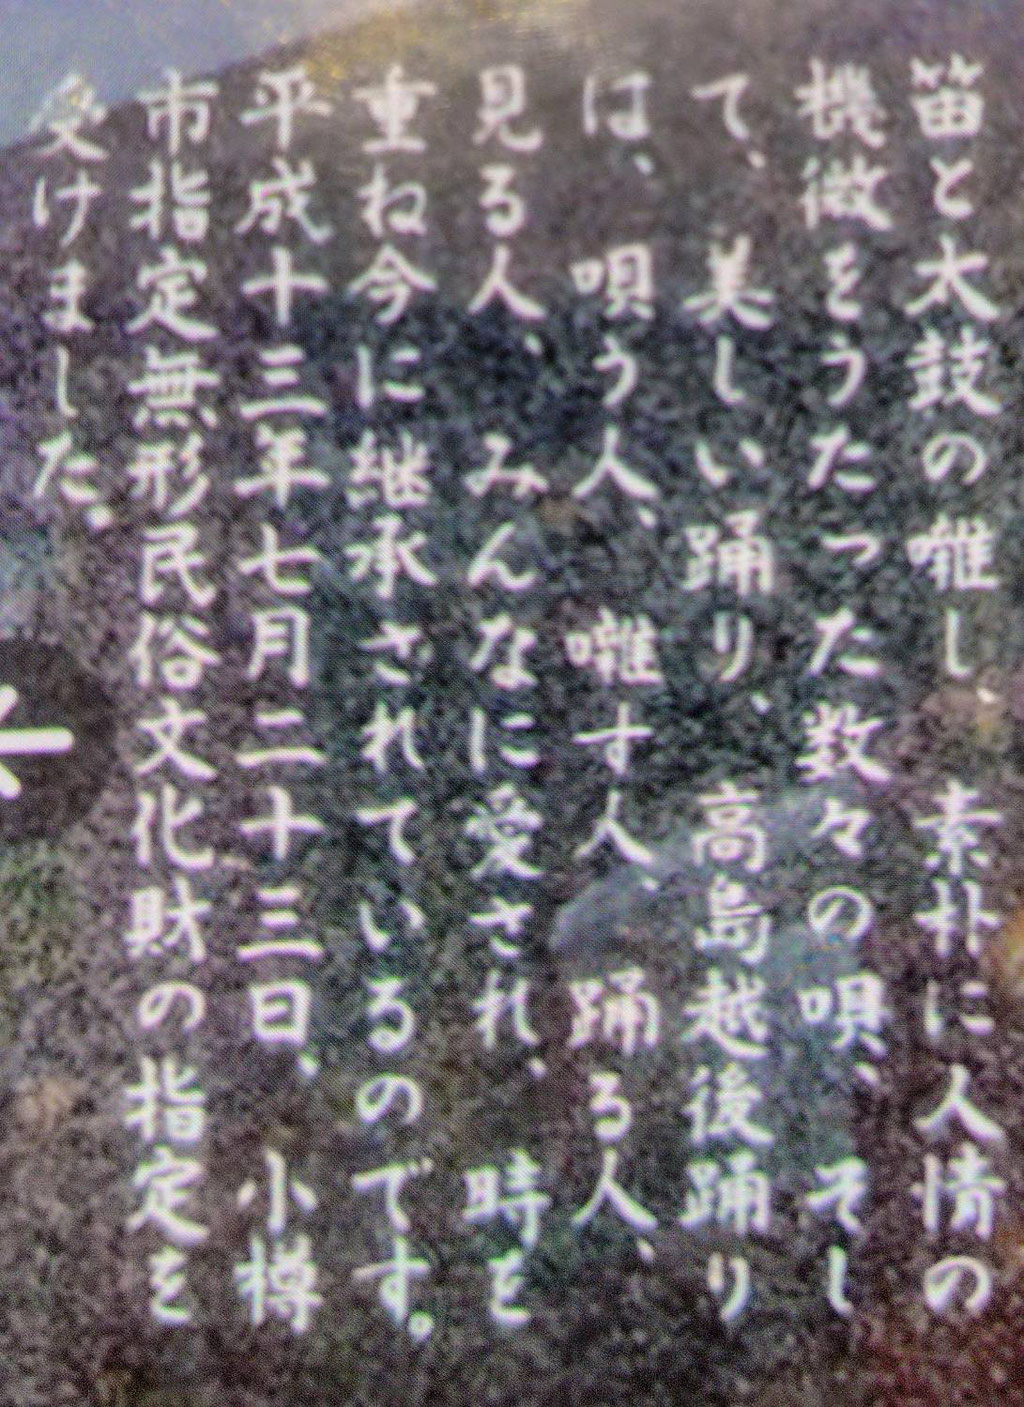 笛と太鼓の囃し、素朴に人情の
機微をうたった数々の唄、そし
て、美しい踊り、高島越後踊り
は、唄う人、囃す人、踊る人、
見る人、みんなに愛され、時を
重ね今に継承されているのです。
平成十三年七月二十三日、小樽
市指定無形民俗文化財の指定を
受けました。